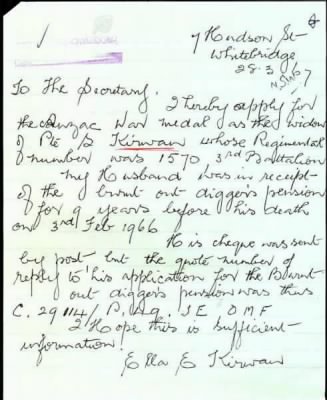 7 Hudson St
Whitebridge
28.3.67
N.S.W.
To The Secretary.
I hereby apply for
the Anzac War medal as the widow
of Pte S Kirwan whose Regimental
number was 1570 3rd Battalion
My Husband was in receipt
of the burnt out diggers pension
for 9 years before his death
on 3rd Feb 1966
His cheque was sent
by post but the quote number of
reply to his application for the Burnt
out diggers pension was thus
C. 29114/ P. Ag. JE. OMF
I Hope this is sufficient
information.
Ella E Kirwan